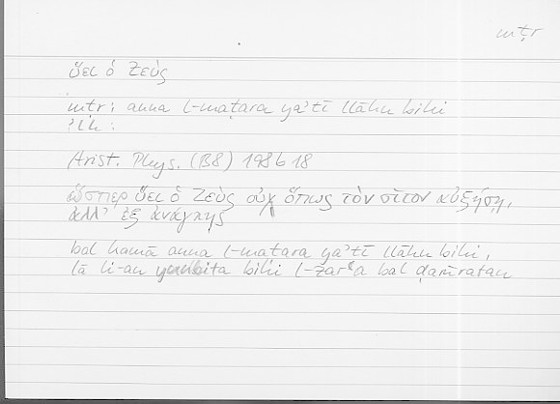 mṭr
ὕει ὁ Ζεύς
mṭr: anna l-maṭara ya'tī llāhu bihi
'lh :
Arist. Phys. (B8) 198b18
ὥσπερ ὕει ὁ Ζεὺς οὐχ ὅπως τὸν σῖτον αὐξήσῃ,
ἀλλ' ἐξ ἀνάγκης
bal kamā anna l-maṭara ya'tī llāhu bihi,
lā li-an yunbita bihi l-zarʿa bal ḍarūratan